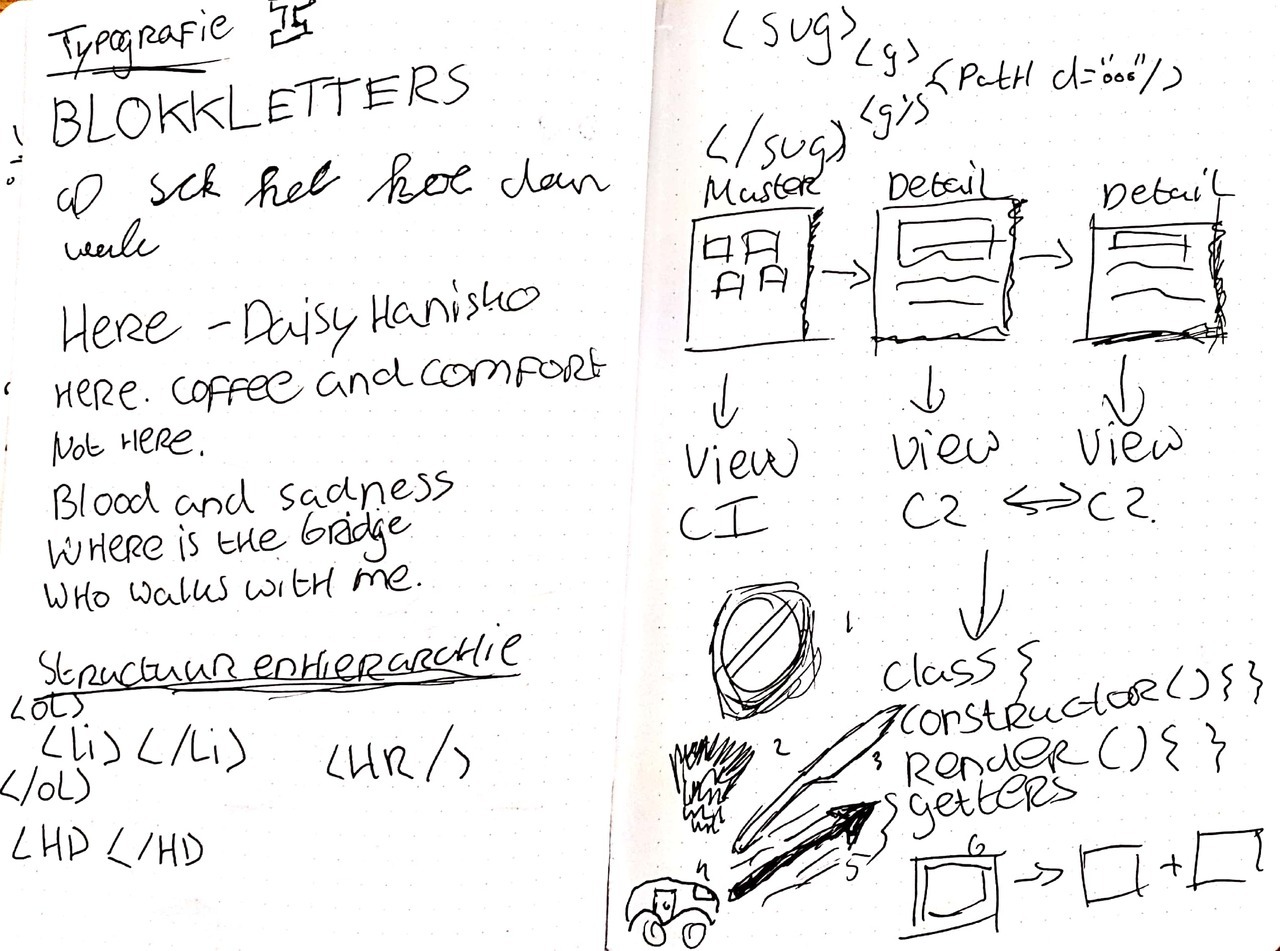 Typografie
BLOKKLETTERS
sck het hoe dan
Here - Daisy Hanisko
HERE. coffee and comfort
Not HERE.
Blood and sadness
WHERE is the bridge
WHO walks with me.
Structuur en HIERARCHIE
<ol>
<li> </Li>
<HR />
</ol>
<HD </HD
<svg>
<g>
<PatH d="ooo"/>
</svg>
Master Detail Detail
View View View
C1 C2 C2.
1
class {
constructor() { }
2
3
render () { }
getters
}
4
5
6
+